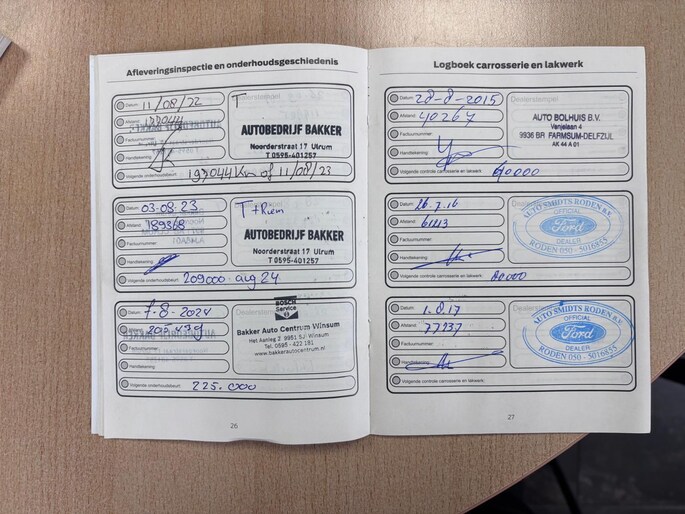 Afleveringsinspectie en onderhoudsgeschiedenis
Datum: 11/08/22
Afstand:
Factuurnummer:
Handtekening:
Volgende onderhoudsbeurt: 193044 Km of 11/08/23
T
AUTOBEDRIJF BAKKER
Noorderstraat 17 Ulrum
T 0595-401257
Datum: 03-08-23
Afstand: 189368
Factuurnummer:
Handtekening:
Volgende onderhoudsbeurt: 209000 aug 24
T + Riem
AUTOBEDRIJF BAKKER
Noorderstraat 17 Ulrum
T 0595-401257
Datum: 7-8-2024
Afstand: 205439
Factuurnummer:
Handtekening:
Volgende onderhoudsbeurt: 225.000
BOSCH
Service
Bakker Auto Centrum Winsum
Het Aanleg 2 9951 SJ Winsum
Tel. 0595 - 422 181
www.bakkerautocentrum.nl
26
Logboek carrosserie en lakwerk
Datum: 28-8-2015
Afstand: 40267
Factuurnummer:
Handtekening:
Volgende controle carrosserie en lakwerk: 60000
Dealerstempel
AUTO BOLHUIS B.V.
Venjelaan 4
9936 BR FARMSUM-DELFZIJL
AK 44 A 01
Datum: 26.7.16
Afstand:
Factuurnummer:
Handtekening:
Volgende controle carrosserie en lakwerk: 80000
AUTO SMIDTS RODEN B.V.
OFFICIAL
Ford
DEALER
RODEN 050 - 5016855
Datum: 1.8.17
Afstand: 77237
Factuurnummer:
Handtekening:
Volgende controle carrosserie en lakwerk:
AUTO SMIDTS RODEN B.V.
OFFICIAL
Ford
DEALER
RODEN 050 - 5016855
27